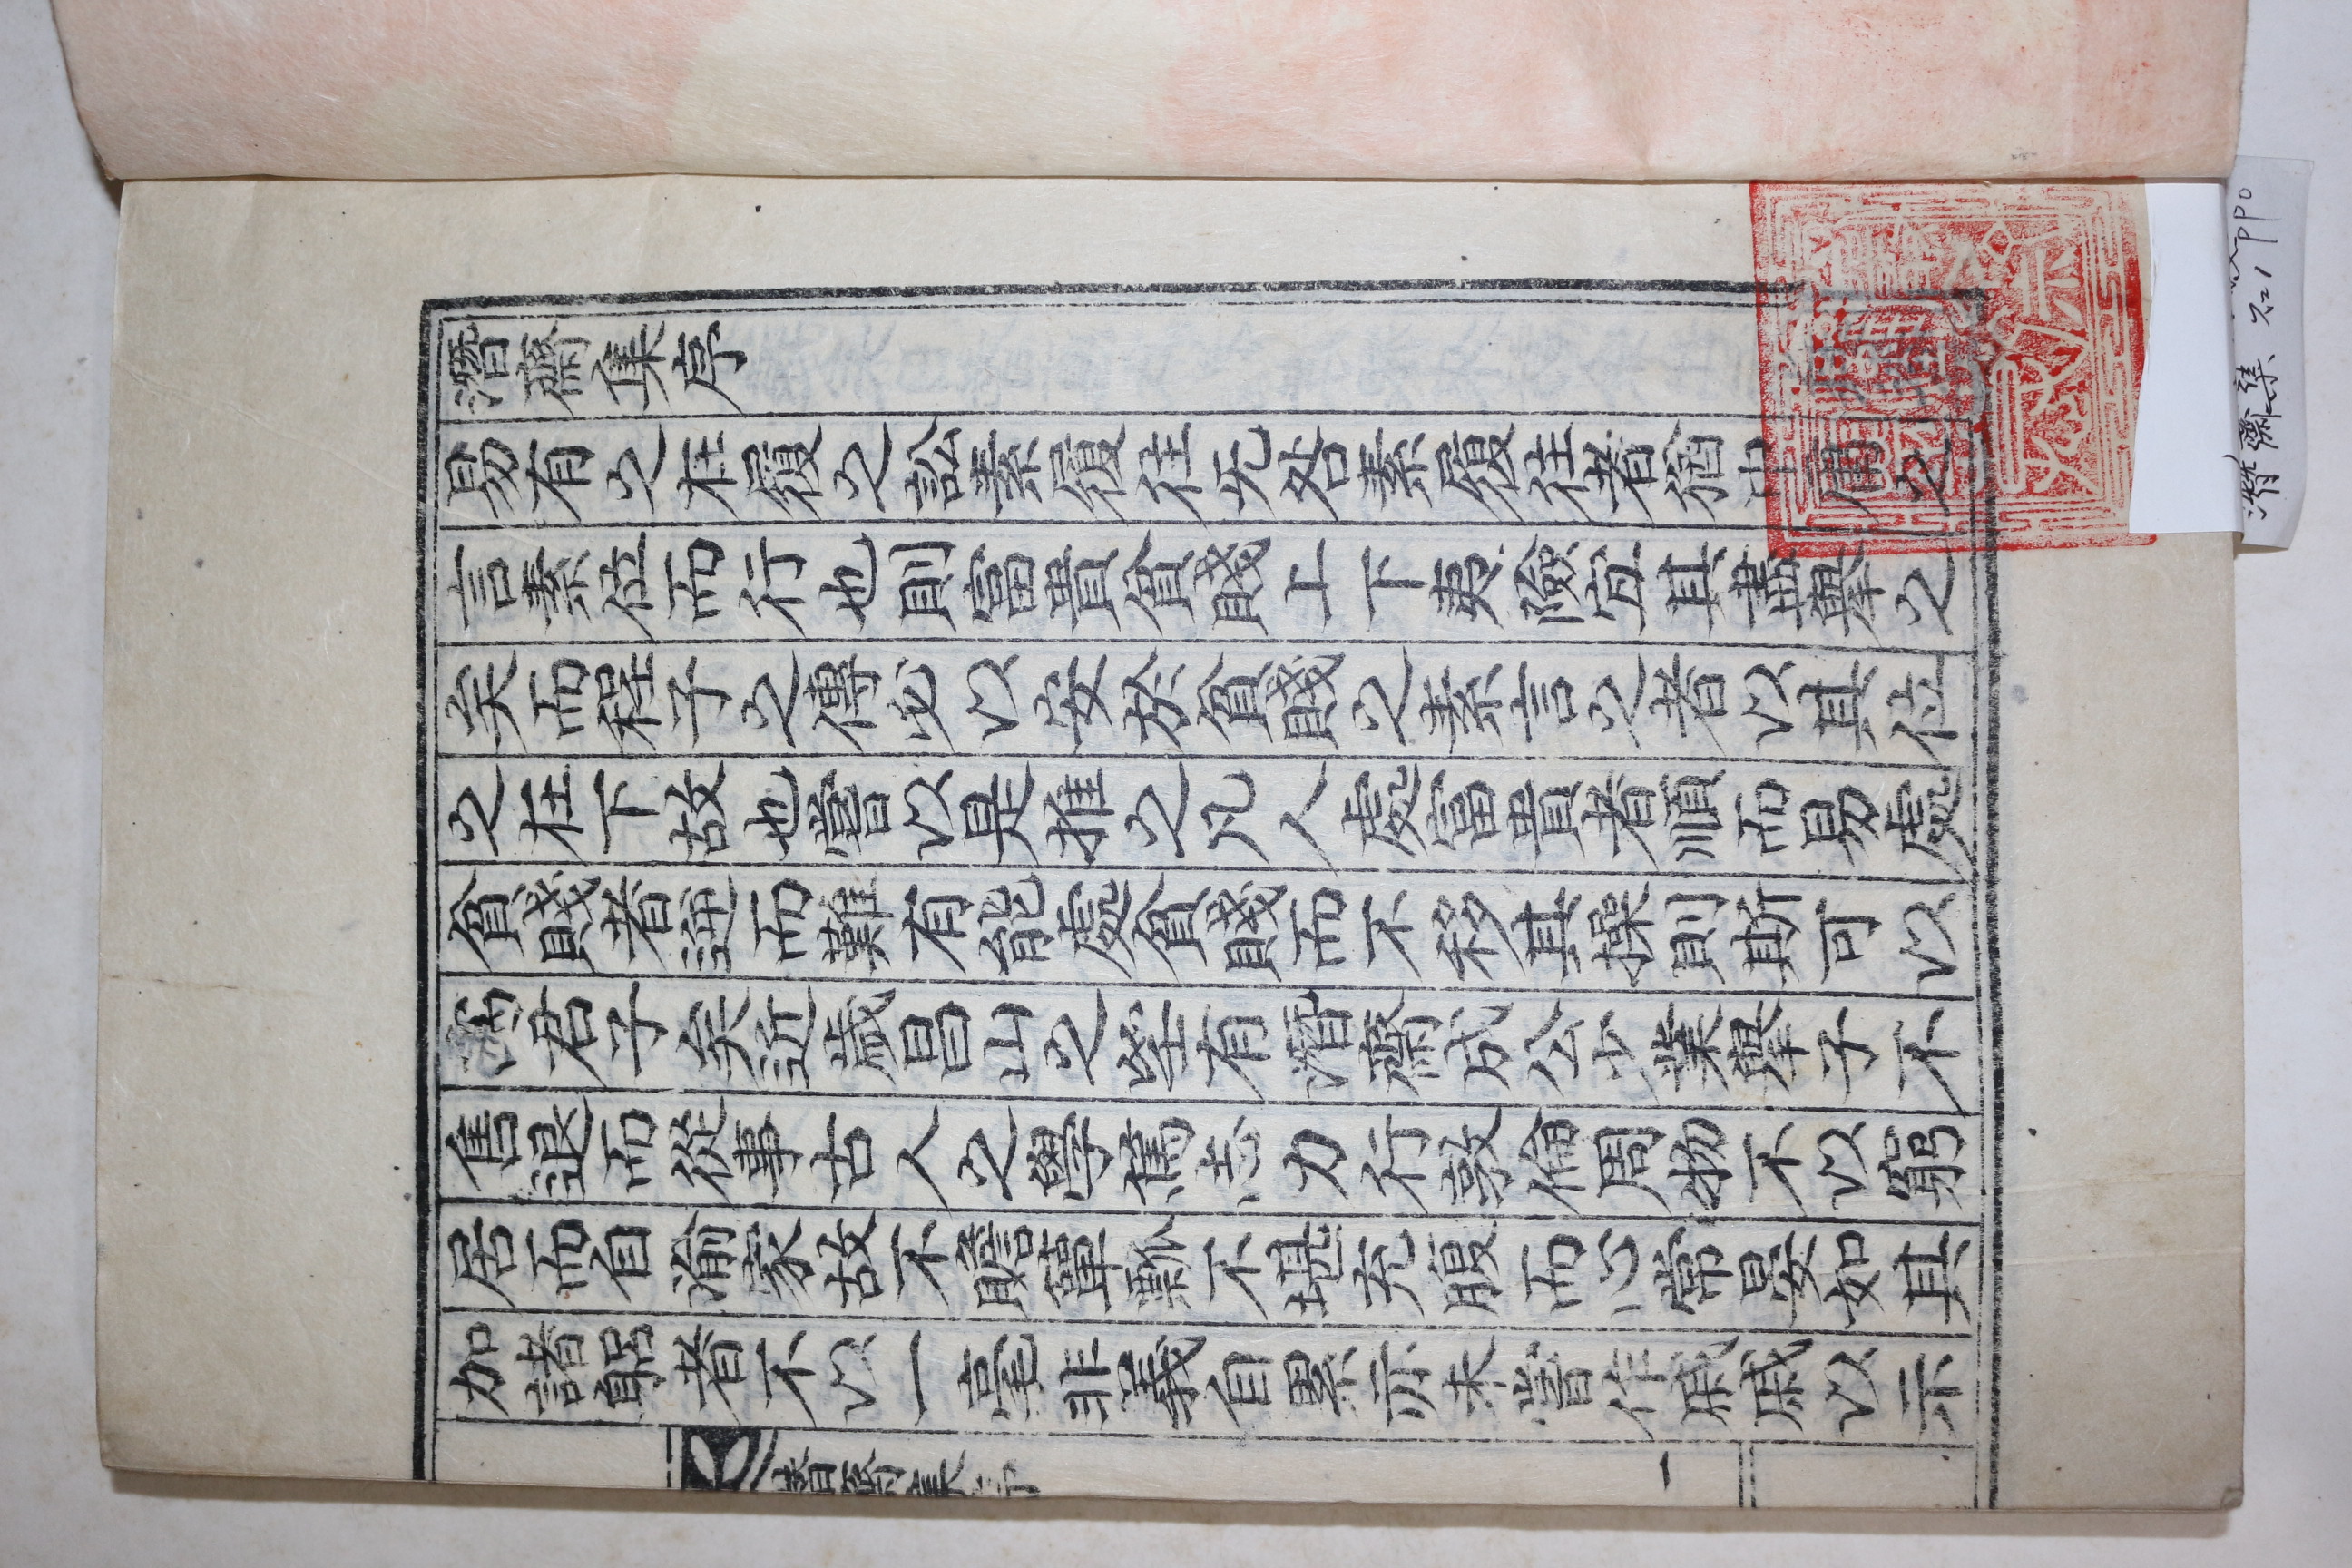 潛齋集序
易有之在履之訟素履往无咎素履往者猶中庸之
言素位而行也則富貴貧賤上下夷險宜其盡擧之
矣而程子之傳必以安於貧賤之素言之者以其位
之在下故也嘗以是推之凡人處富貴者順而易處
貧賤者逆而難有能處貧賤而不移其操則斯可以
爲君子矣近歲昌山之坒有潛齋成公少業擧子不
售退而從事古人之學篤志力行敦倫周物不以窮
居而自渝家故不贍簞瓢不堪充腹而心常晏如其
加諸躬者不以一毫非義自累亦未嘗作戚戚以示
潛齋集序
一
潛齋集